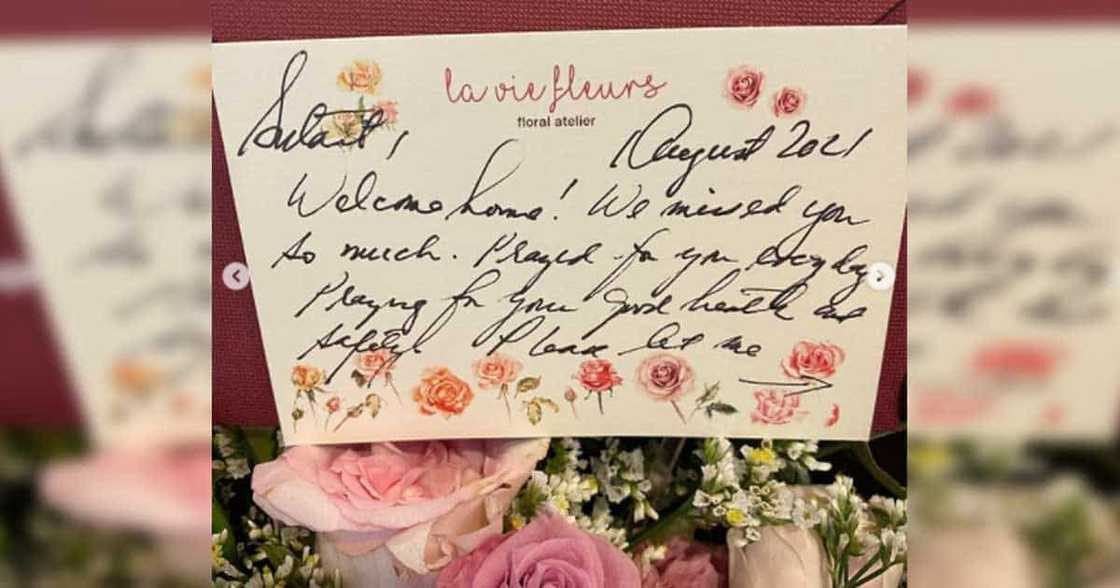 la vie fleurs
floral atelier
August 2021
Welcome home! We missed you
so much. Prayed for you everyday
Praying for your good health and
safety! Please let me